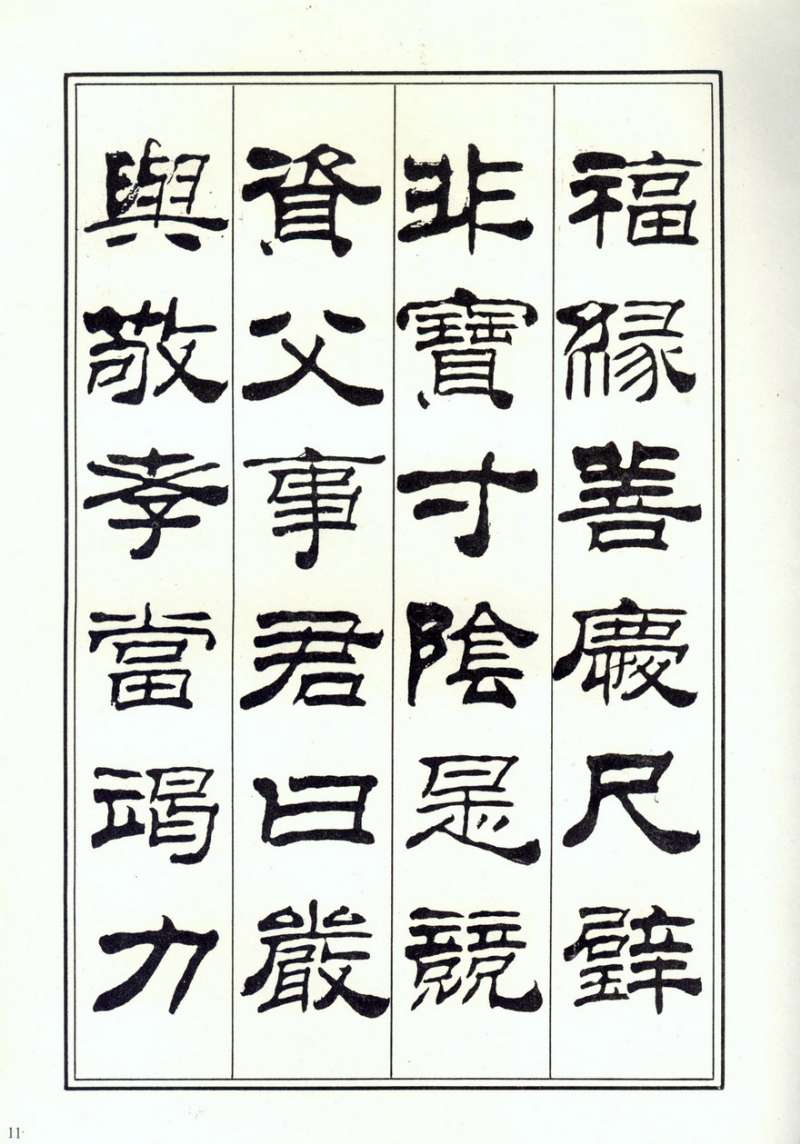 福緣善慶尺璧
非寶寸陰是競
資父事君曰嚴
與敬孝當竭力
11